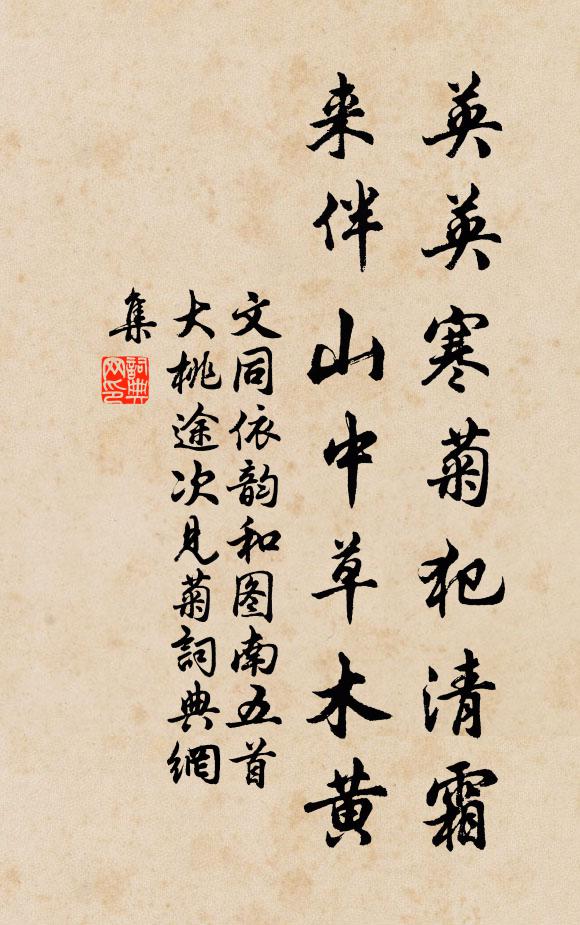 英英寒菊犯清霜
来伴山中草木黄
文同依韵和图南五首
大桃途次见菊詞典網
集
詞典
网印